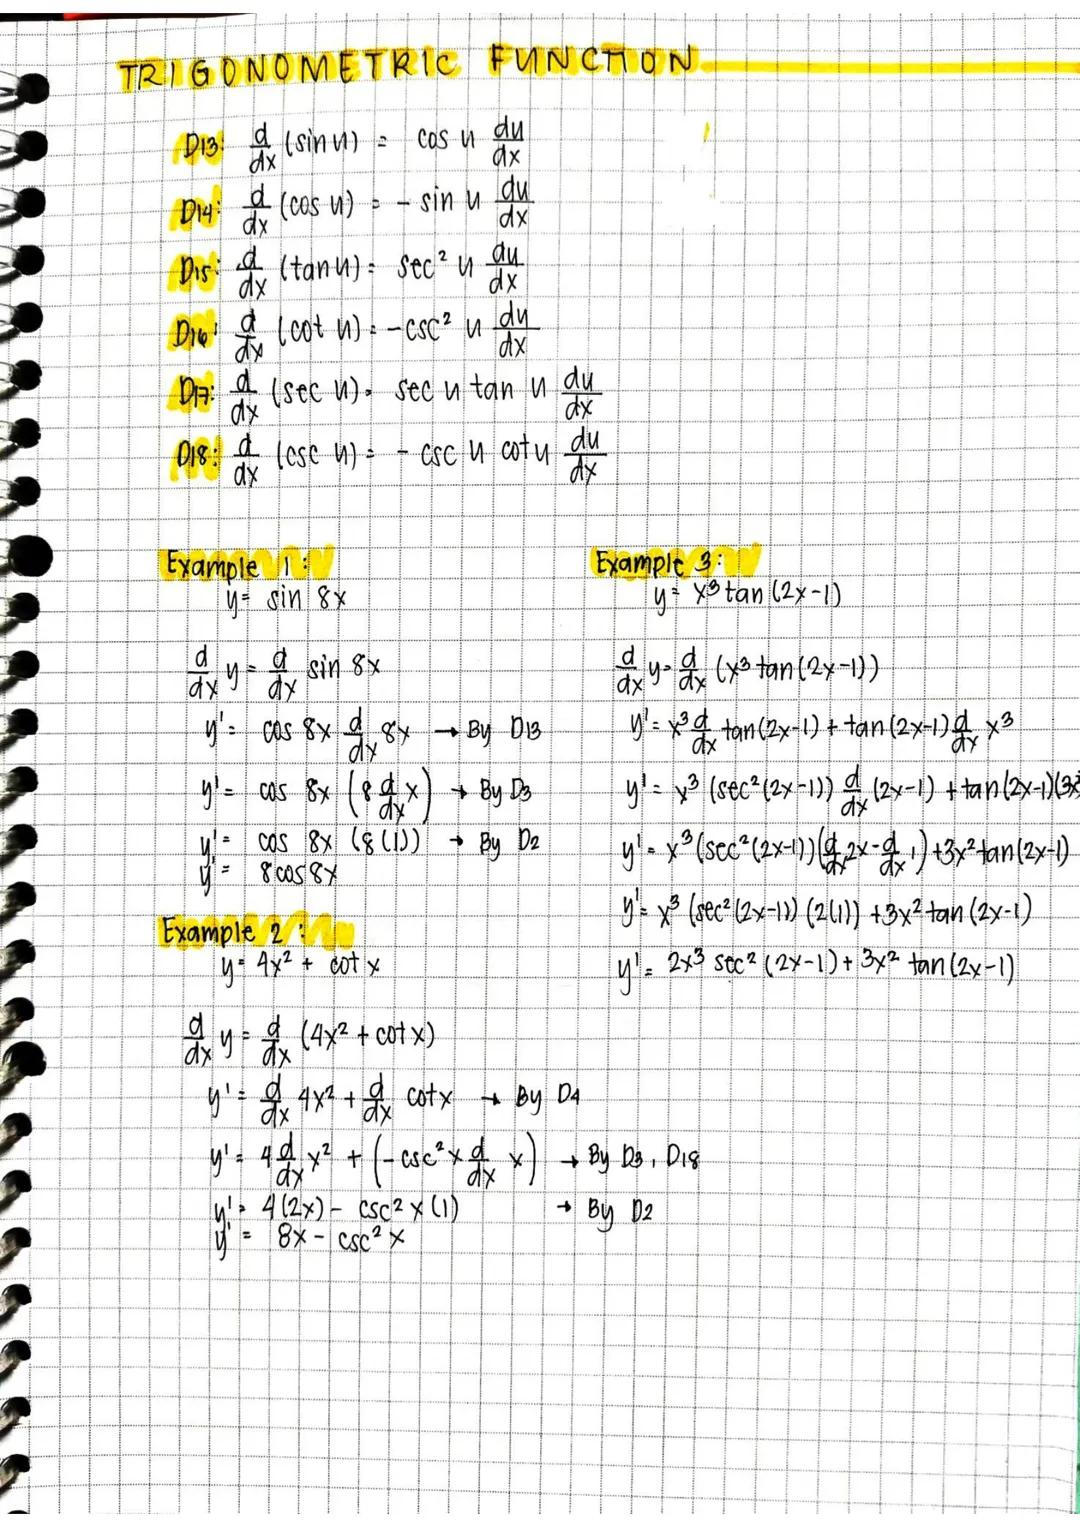 TRIGONOMETRIC FUNCTION
D13: d/dx (sin u) = cos u du/dx
D14: d/dx (cos u) = - sin u du/dx
D15: d/dx (tan u) = sec² u du/dx
D16: d/dx (cot u) = -csc² u du/dx
D17: d/dx (sec u) = sec u tan u du/dx
D18: d/dx (csc u) = - csc u cot u du/dx
Example 1:
y = sin 8x
d/dx y = d/dx sin 8x
y' = cos 8x d/dx 8x → By D13
y' = cos 8x (8 d/dx x) → By D3
y' = cos 8x (8(1)) → By D2
y' = 8cos8x
Example 2:
y = 4x² + cot x
d/dx y = d/dx (4x² + cot x)
y' = d/dx 4x² + d/dx cotx → By D4
y' = 4 d/dx x² + (-csc² x d/dx x) → By D3, D18
y' = 4(2x) - csc² x (1) → By D2
y' = 8x - csc² x
Example 3:
y = x³ tan (2x-1)
d/dx y = d/dx (x³ tan (2x-1))
y' = x³ d/dx tan(2x-1) + tan (2x-1) d/dx x³
y' = x³ (sec² (2x-1)) d/dx (2x-1) + tan (2x-1)(3x²
y' = x³ (sec² (2x-1)) (d/dx 2x - d/dx 1) + 3x² tan (2x-1)
y' = x³ (sec² (2x-1)) (2(1)) + 3x² tan (2x-1)
y' = 2x³ sec² (2x-1) + 3x² tan (2x-1)